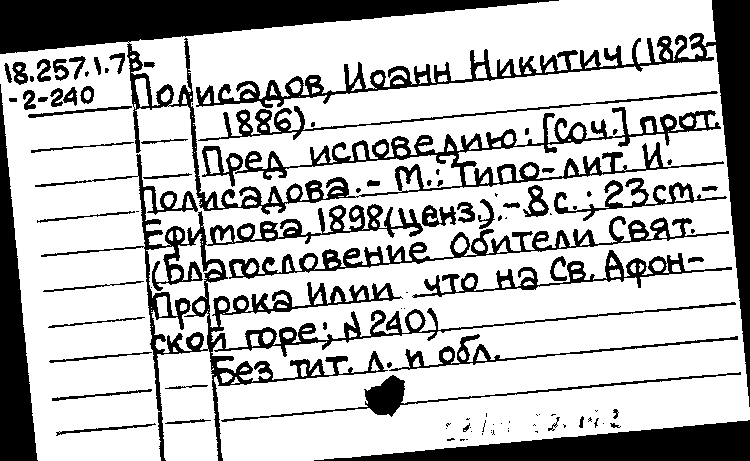 18.257.1.73-
-2-240
Полисадов, Иоанн Никитич (1823-
1886).
Пред исповедию: [Соч.] прот.
Полисадова.- М.: Типо-лит. И.
Ефимова, 1898(ценз.).- 8 с.; 23 см.-
(Благословение Обители Свят.
Пророка Илии что на Св. Афон-
ской горе; N 240)
Без тит. л. и обл.